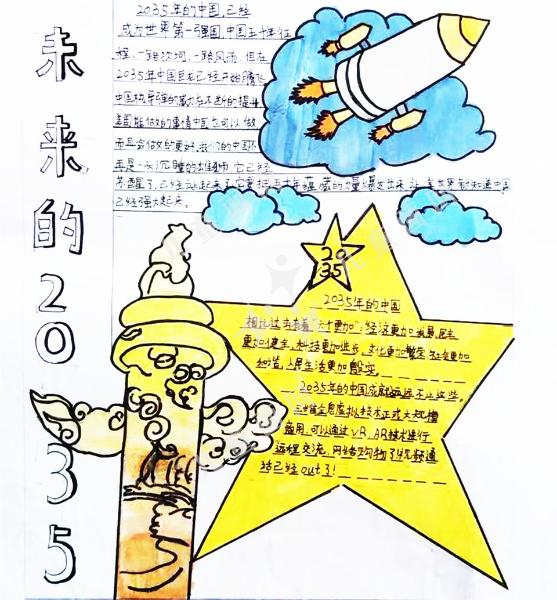 未来的2035
2035年的中国,已经
成为世界第一强国,中国五千年征
程,一路坎坷,一路风雨,但在
2035年中国巨龙已经开始腾飞
中国核导弹的威力在不断的提升
美国能做的事情中国也可以做
而且会做的更好,我们的中国不
再是一头沉睡的雄狮,它已经
苏醒了,已经站起来了,它要把五千年蕴藏的力量爆发出来,让全世界都知道中国
已经强大起来。
2035
2035年的中国
相比过去有着"六个更加":经济更加发展,民主
更加健全,科技更加进步,文化更加繁荣,社会更加
和谐,人民生活更加殷实。
2035年的中国成就远远不止这些。
全息虚拟技术正式大规模
商用,可以通过VR、AR技术进行
远程交流,网络购物了!视频通
话已经out了!